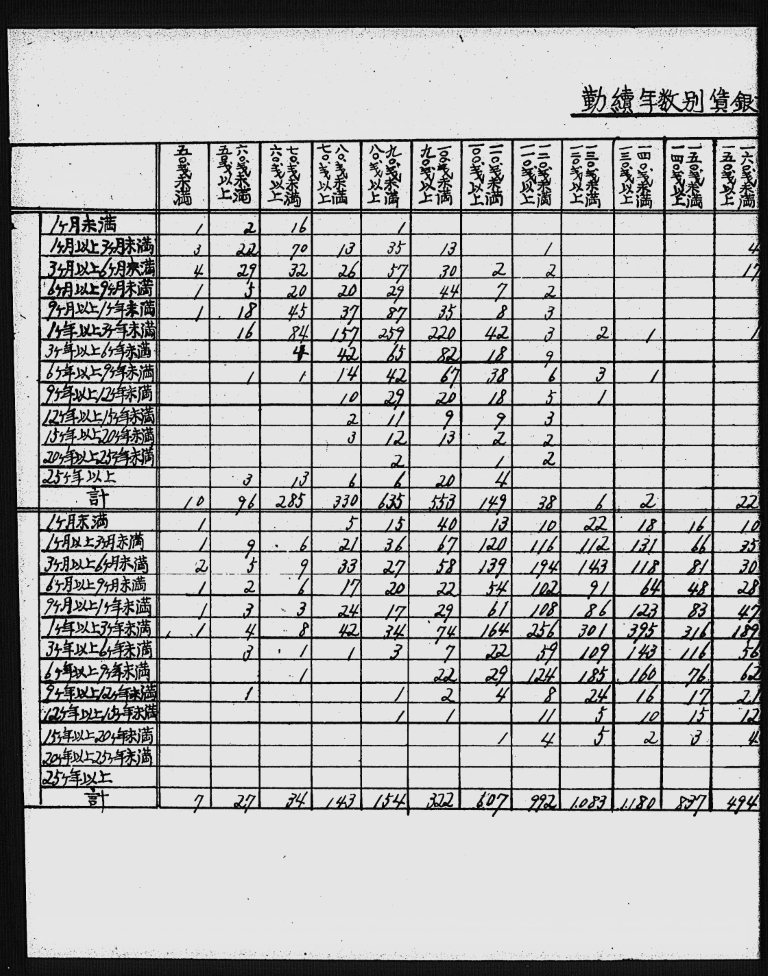 勤續年数別賃銀
五〇戋未満 六〇戋未満五〇戋以上 七〇戋未満六〇戋以上 八〇戋未満七〇戋以上 九〇戋未満八〇戋以上 一〇〇戋未満九〇戋以上 一一〇戋未満一〇〇戋以上 一二〇戋未満一一〇戋以上 一三〇戋未満一二〇戋以上 一四〇戋未満一三〇戋以上 一五〇戋未満一四〇戋以上 一六〇戋未満一五〇戋以上
1ヶ月未満 1 2 16 1
1ヶ月以上3ヶ月未満 3 22 70 13 35 13 1 4
3ヶ月以上6ヶ月未満 4 29 32 26 57 30 2 2 17
6ヶ月以上9ヶ月未満 1 5 20 20 29 44 7 2
9ヶ月以上1ヶ年未満 1 18 45 37 87 35 8 3
1ヶ年以上3ヶ年未満 16 84 157 259 220 42 3 2 1 1
3ヶ年以上6ヶ年未満 4 42 65 82 18 9
6ヶ年以上9ヶ年未満 1 1 14 42 67 38 6 3 1
9ヶ年以上12ヶ年未満 10 29 20 18 5 1
12ヶ年以上15ヶ年未満 2 11 9 9 3
15ヶ年以上20ヶ年未満 3 12 13 2 2
20ヶ年以上25ヶ年未満 2 1 2
25ヶ年以上 3 13 6 6 20 4
計 10 96 285 330 635 553 149 38 6 2 22
1ヶ月未満 1 5 15 40 13 10 22 18 16 10
1ヶ月以上3ヶ月未満 1 9 6 21 36 67 120 116 112 131 66 35
3ヶ月以上6ヶ月未満 2 5 9 33 27 58 139 194 143 118 81 30
6ヶ月以上9ヶ月未満 1 2 6 17 20 22 54 102 91 64 48 28
9ヶ月以上1ヶ年未満 1 3 3 24 17 29 61 108 86 123 83 47
1ヶ年以上3ヶ年未満 1 4 8 42 34 74 164 256 301 395 316 189
3ヶ年以上6ヶ年未満 3 1 1 3 7 22 59 109 143 116 56
6ヶ年以上9ヶ年未満 1 22 29 124 185 160 76 62
9ヶ年以上12ヶ年未満 1 1 2 4 8 24 16 17 21
12ヶ年以上15ヶ年未満 1 1 11 5 10 15 12
15ヶ年以上20ヶ年未満 1 4 5 2 3 4
20ヶ年以上25ヶ年未満
25ヶ年以上
計 7 27 34 143 154 322 607 992 1.083 1.180 837 494